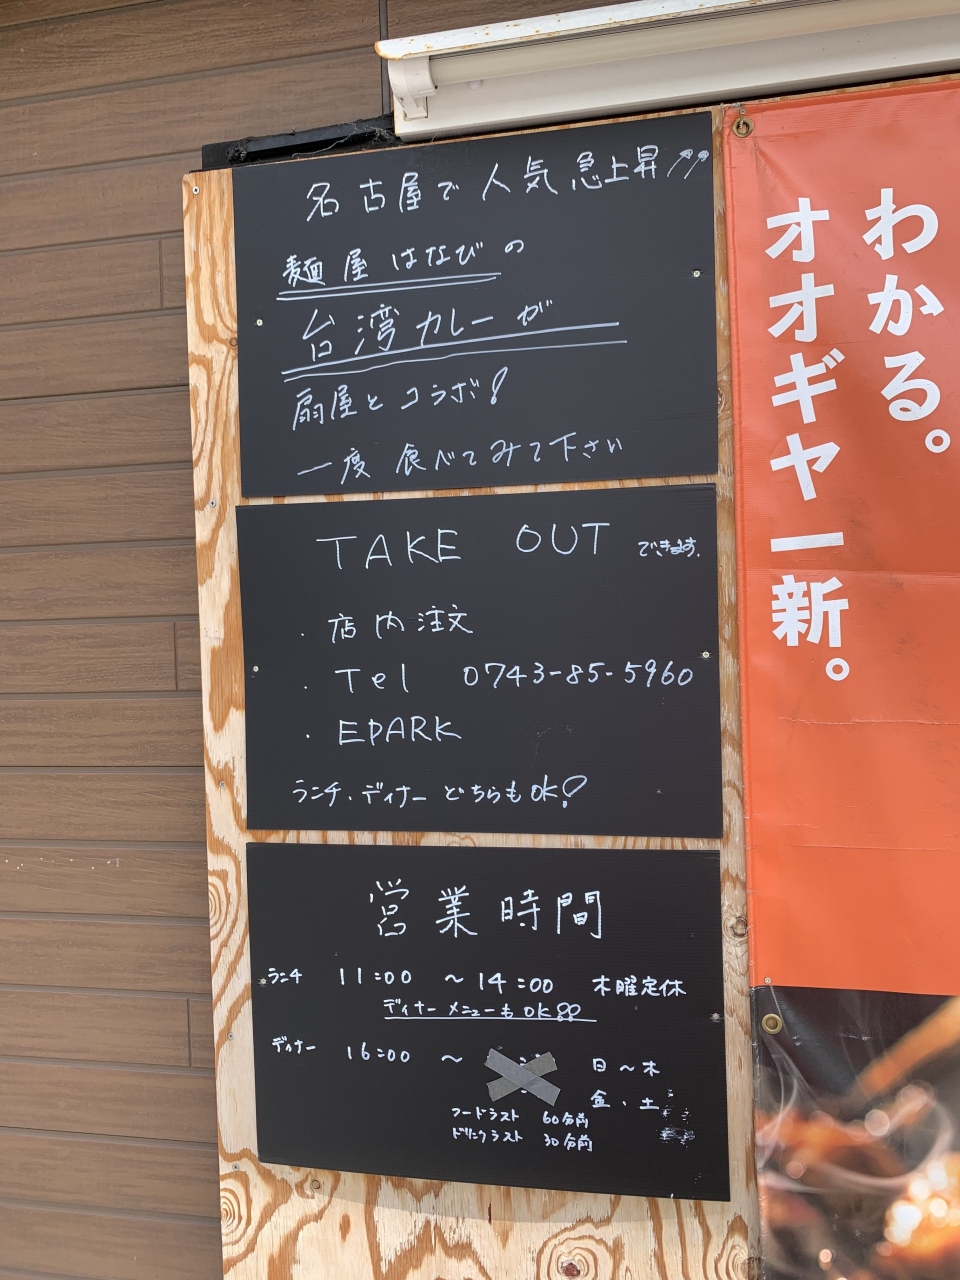 名古屋で人気急上昇
麺屋はなびの
台湾カレーが
扇屋とコラボ!
一度食べてみて下さい
TAKE OUT できます。
・店内注文
・Tel 0743-85-5960
・EPARK
ランチ・ディナーどちらもOK!
営業時間
ランチ 11:00 ～14:00 木曜定休
ディナーメニューもOK!!
ディナー 16:00 ～ 日～木
金、土
フードラスト 60分前
ドリンクラスト 30分前
わかる。
オオギヤ一新。